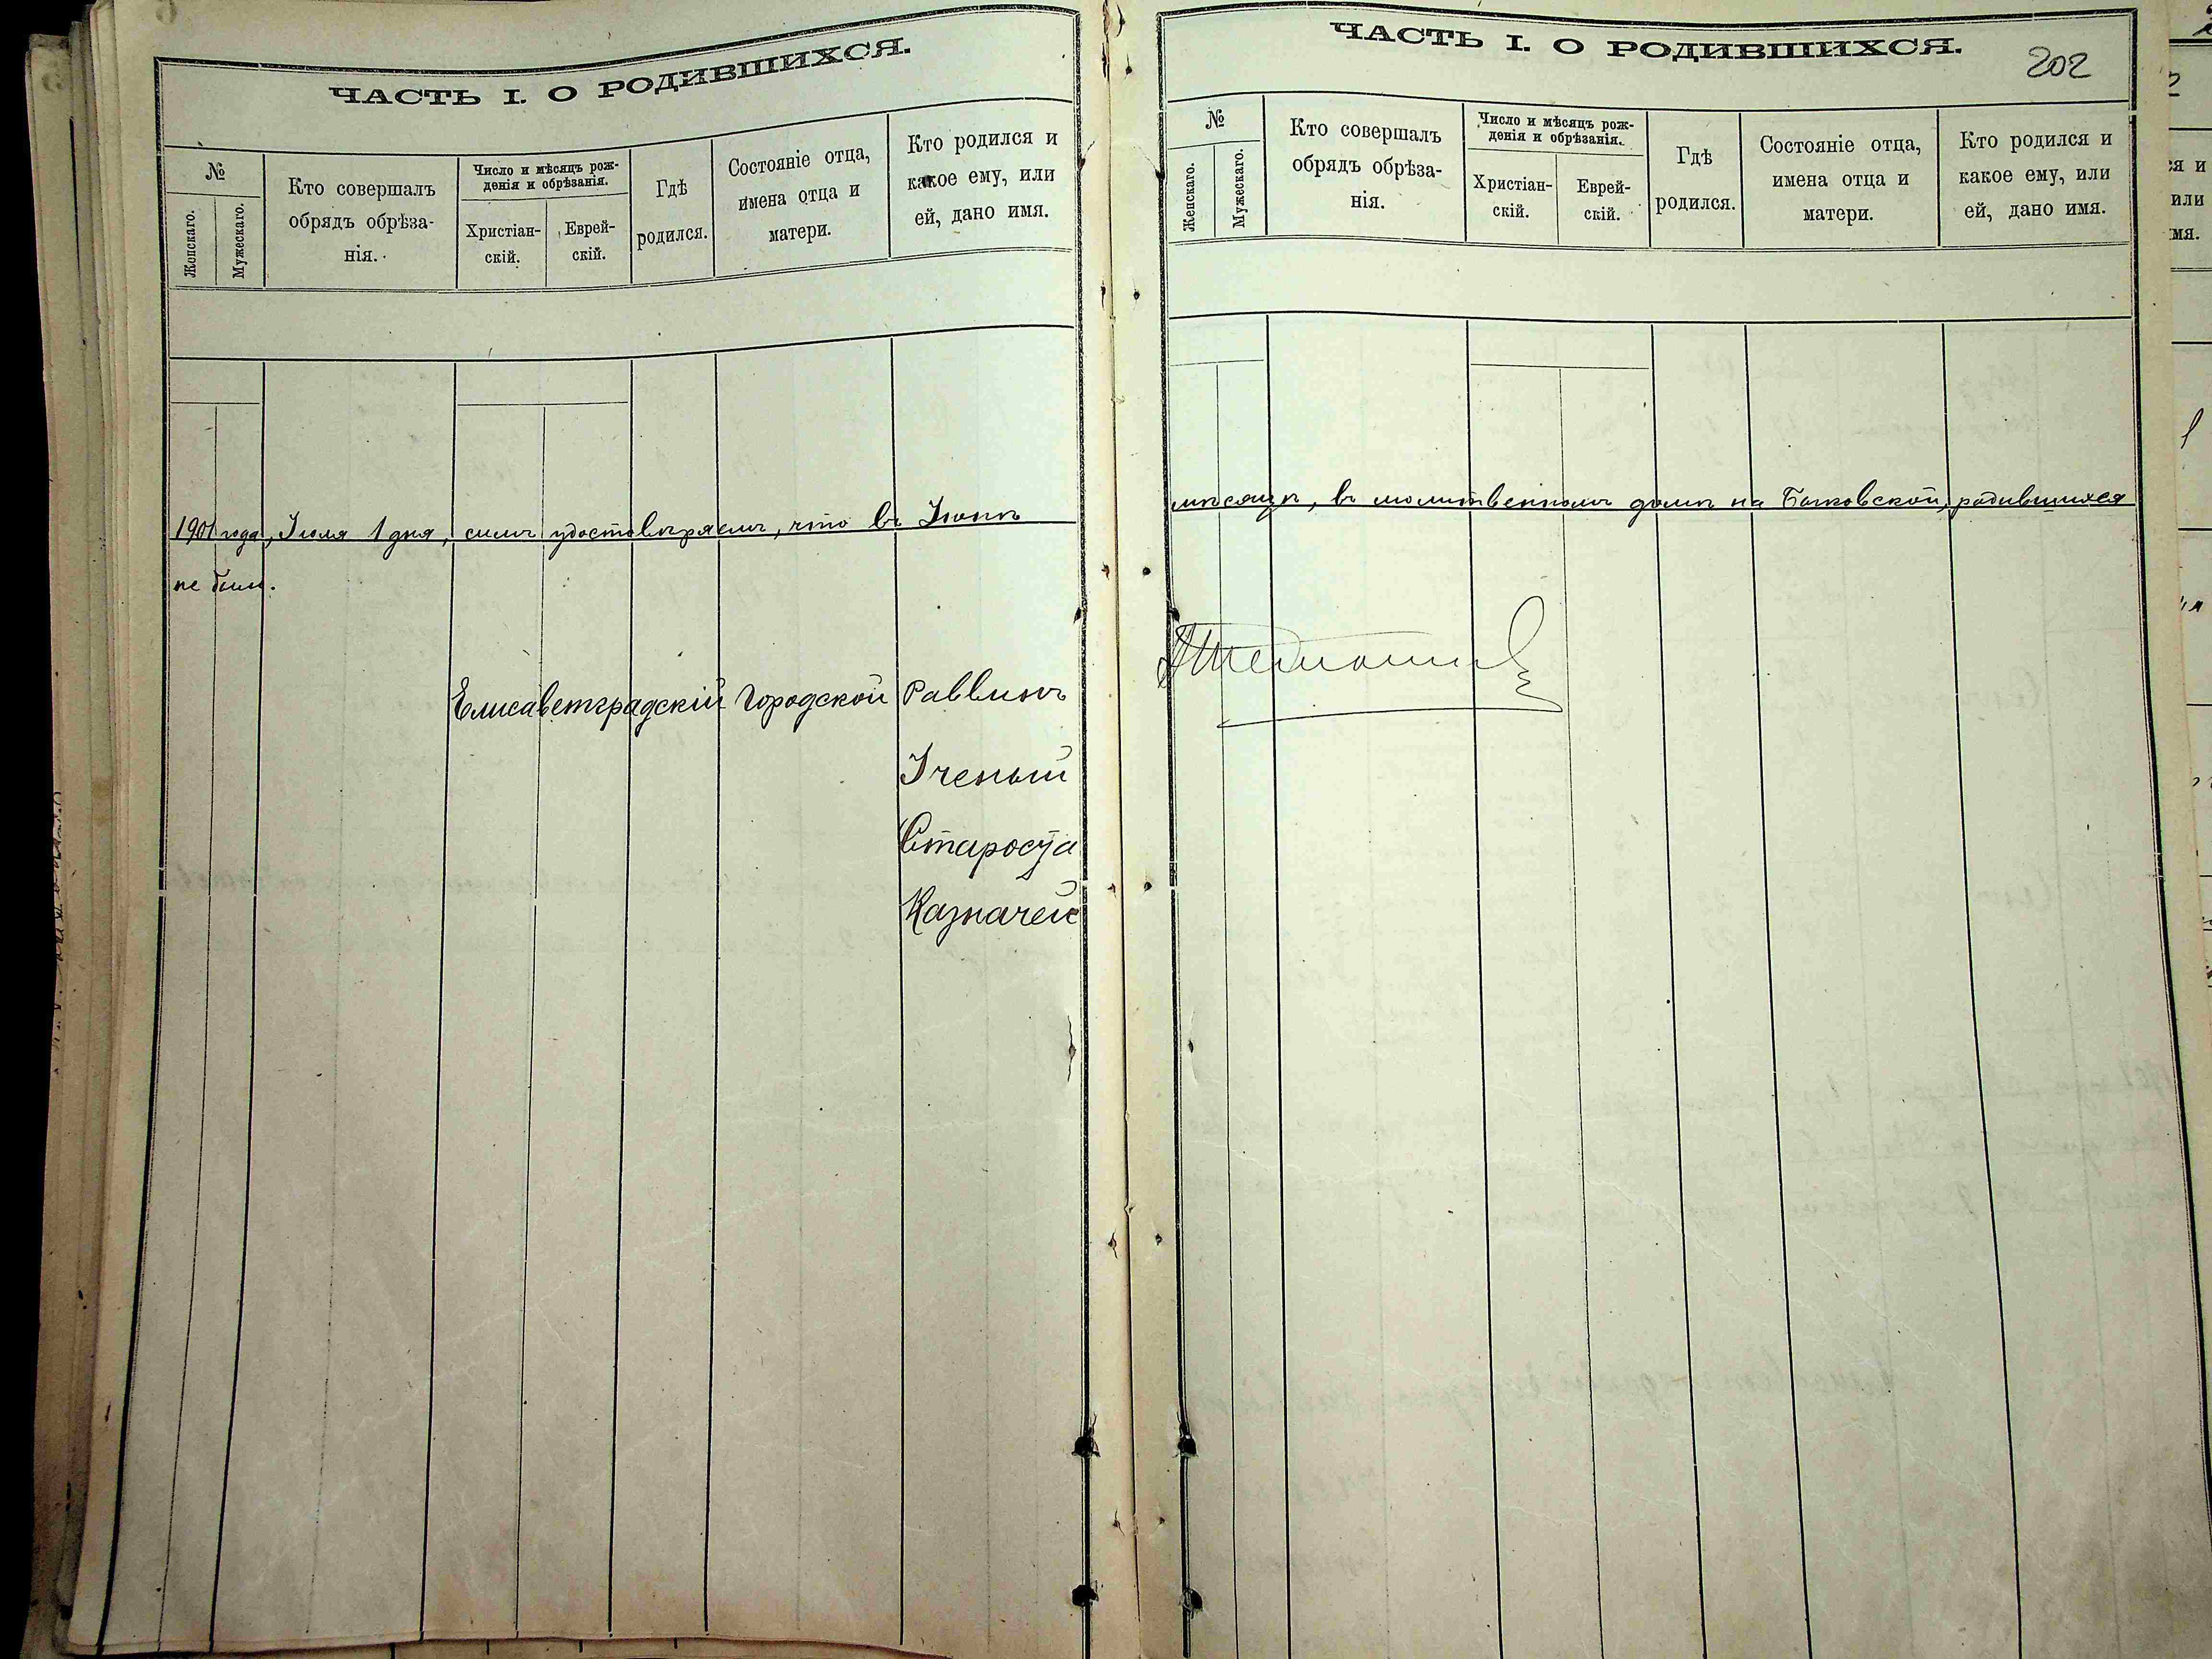 ЧАСТЬ I. О РОДИВШИХСЯ.
№
Женскаго.
Мужескаго.
Кто совершалъ
обрядъ обрѣза-
нія.
Число и мѣсяцъ рож-
денія и обрѣзанія.
Христіан-
скій.
Еврей-
скій.
Гдѣ
родился.
Состояніе отца,
имена отца и
матери.
Кто родился и
какое ему, или
ей, дано имя.
1901 года, Іюля 1 дня, симъ удостовѣряемъ, что въ Іюнѣ
не было.
Елисаветградскій Городской Раввинъ
Ученый
Староста
Казначей
ЧАСТЬ I. О РОДИВШИХСЯ.
202
№
Женскаго.
Мужескаго.
Кто совершалъ
обрядъ обрѣза-
нія.
Число и мѣсяцъ рож-
денія и обрѣзанія.
Христіан-
скій.
Еврей-
скій.
Гдѣ
родился.
Состояніе отца,
имена отца и
матери.
Кто родился и
какое ему, или
ей, дано имя.
мѣсяцѣ, въ молитвенномъ домѣ на Быковской, родившихся
ся и
или
мя.